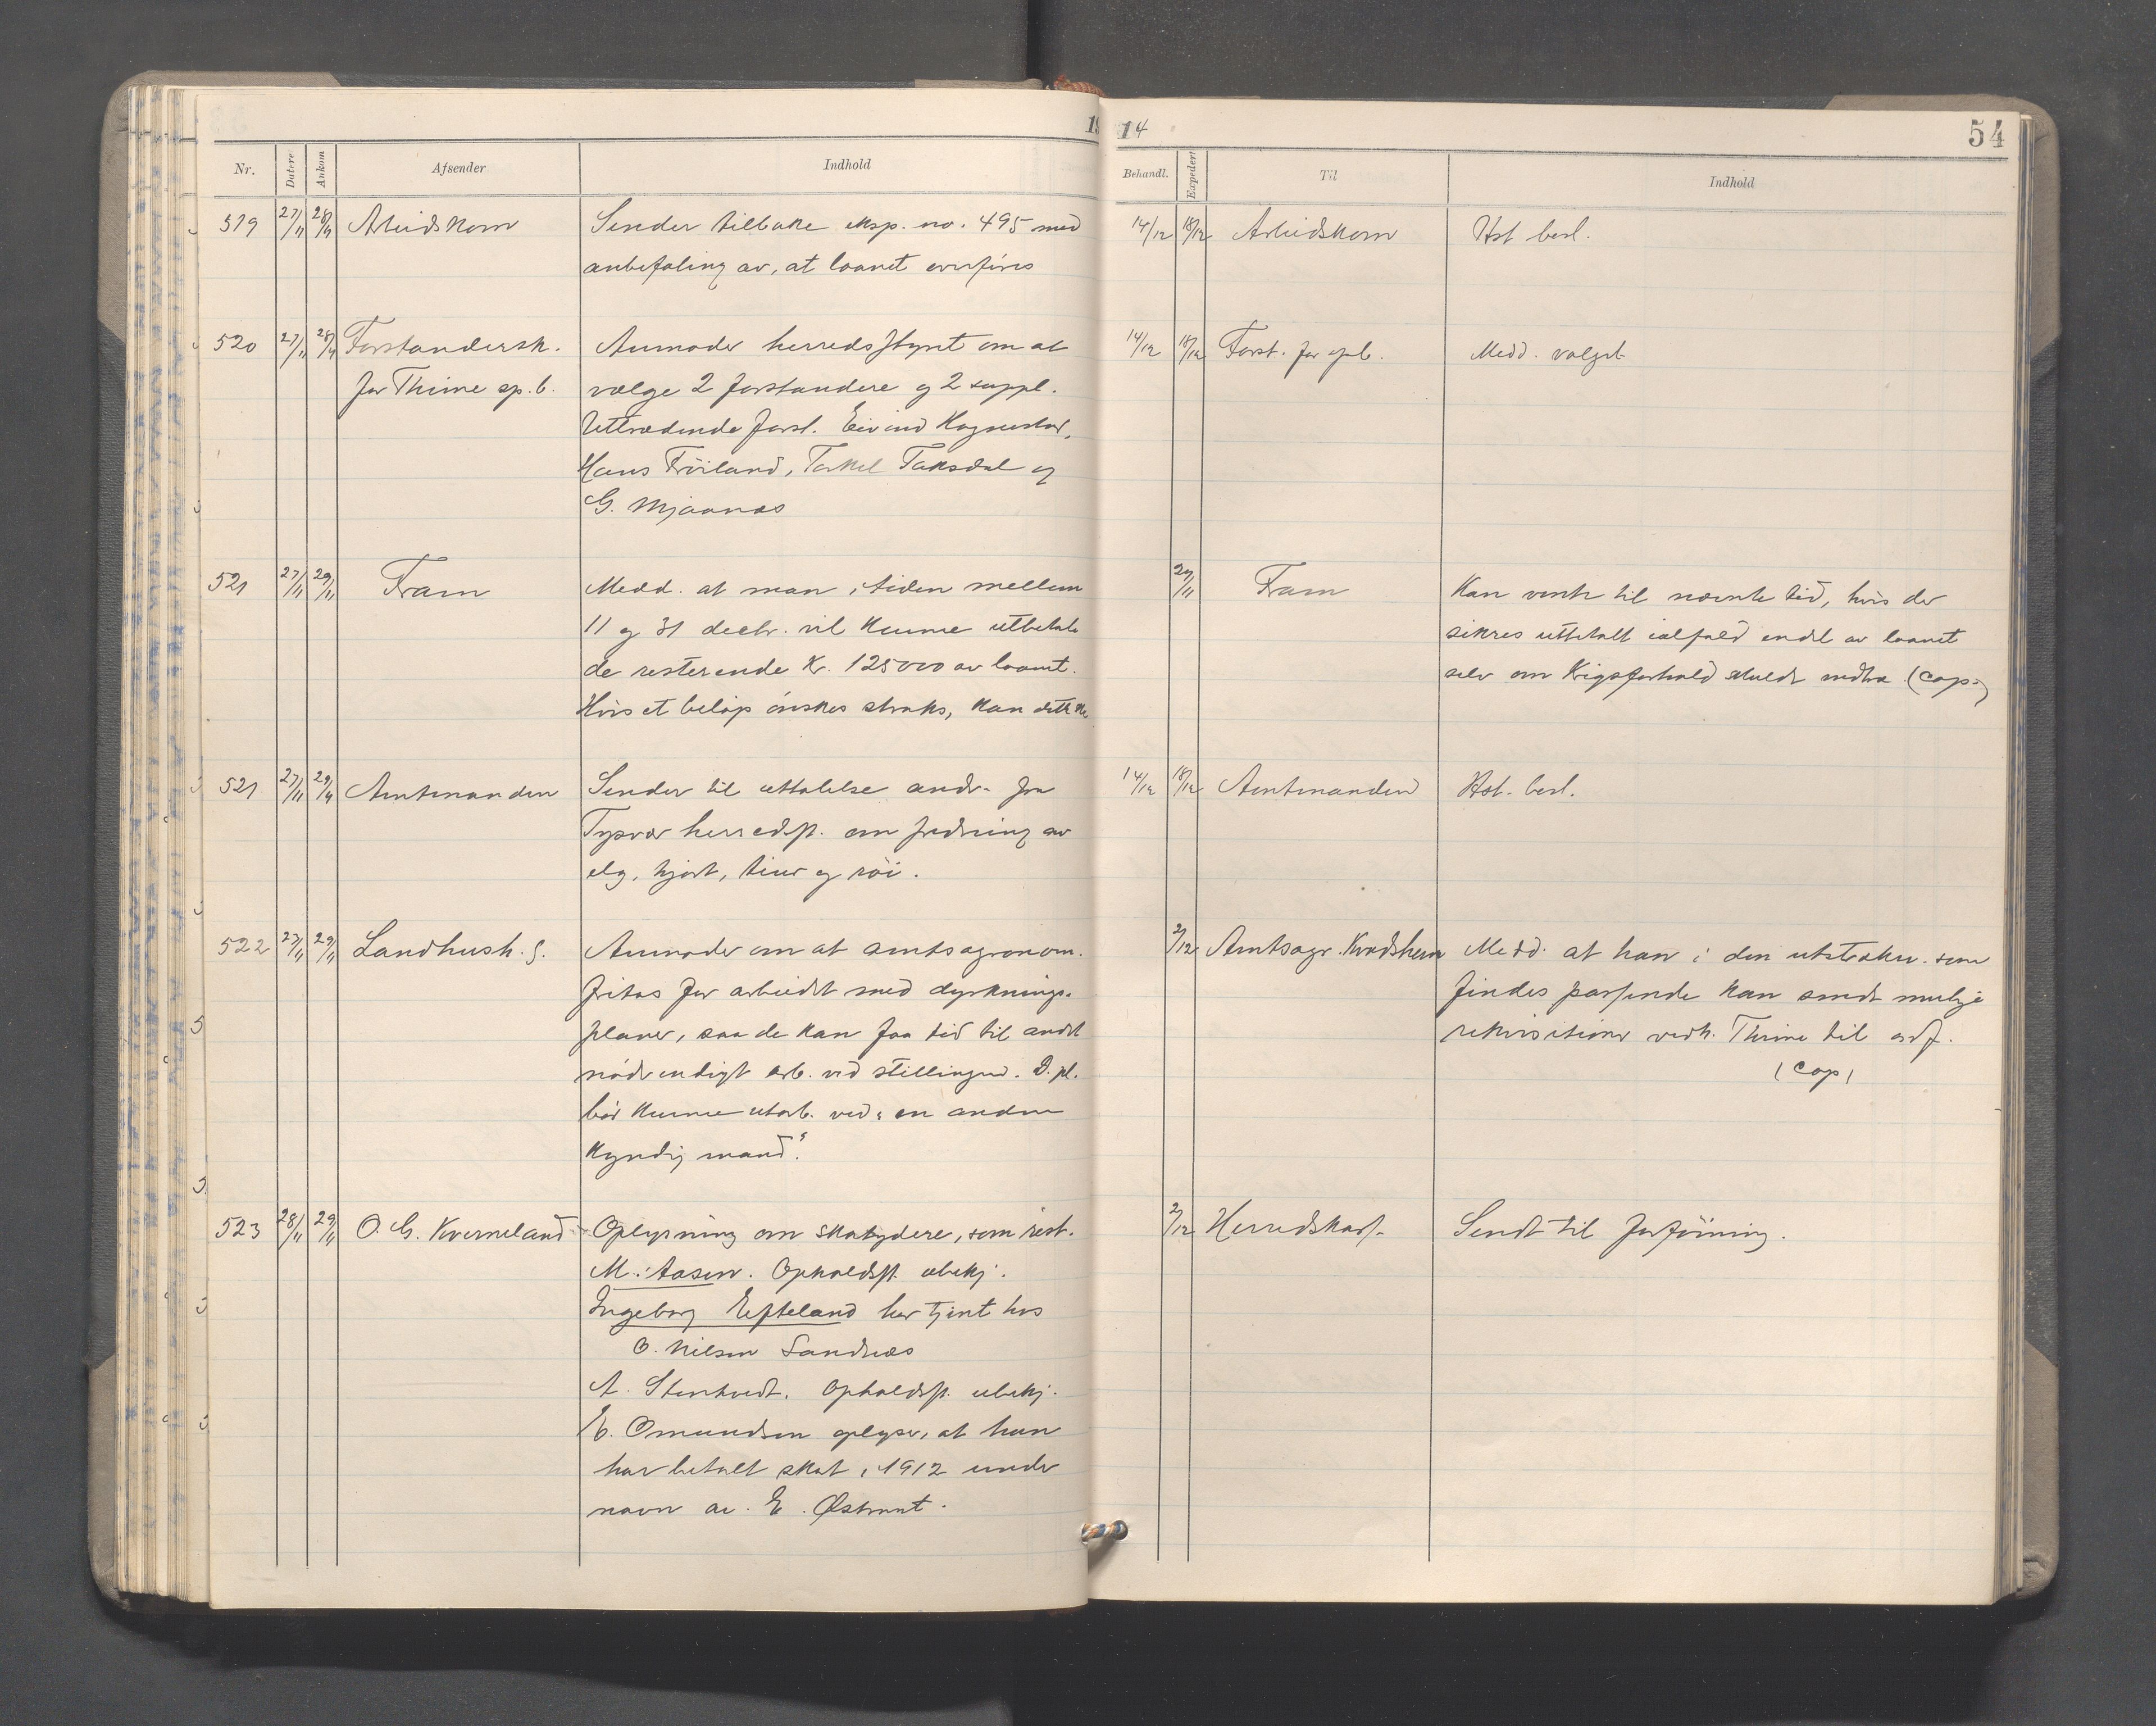 1914
54
Nr. Datere Ankom Afsender Indhold Behandl. Expedert Til Indhold
519 27/11 28/11 Arbeidskom Sender tilbake eksp. no. 495 med 14/12 18/12 Arbeidskom Hst besl.
anbefaling av, at laanet overføres
520 27/11 28/11 Forstandersk. Anmoder herredsstyret om at 14/12 18/12 Forst. for spb. Medd. valget
for Thime sp.b. vælge 2 forstandere og 2 suppl.
Uttrædende forst. Eivind
Hans Fröiland, Torkel Taksdal og
G. Mjaanes
521 27/11 29/11 Fram Medd. at man i tiden mellem 29/11 Fram Kan vente til nævnte tid, hvis der
11 og 31 decbr. vil kunne utbetale sikres utbetalt ialfald endel av laanet
de resterende Kr. 125000 av laanet. selv om krigsforhold skulde indtræ (cop.)
Hvis et beløp önskes straks, kan dette
521 27/11 29/11 Amtmanden Sender til uttalelse andr. fra 14/12 18/12 Amtmanden Hst. besl.
Tysvær herredsst. om fredning av
elg, hjort, tiur og röi.
522 27/11 29/11 Landhush.s. Anmoder om at amtsagronom. 2/12 Amtsagr. Kvadsheim Medd. at han i den utstrækn. som
fritas for arbeidet med dyrknings- findes passende kan sende mulige
planer, saa de kan faa tid til andet rekvisitioner vedk. Thime til
nödvendigt arb. ved stillingen. D.pl. (cop)
bör kunne utarb. ved "en anden
kyndig mand".
523 28/11 29/11 O. G. Kverneland Oplysning om skatydere, som rest. 2/12 Herredskass. Sendt til forföining.
M. Aasen. Opholdsst. ubekj.
Ingeborg Eefteland har tjent hos
O. Nilsen Sandnes
A. Stenkvedt. Opholdsst. ubekj.
E. Omundsen oplyser, at han
har betalt skat i 1912 under
navn av E. Østremt.